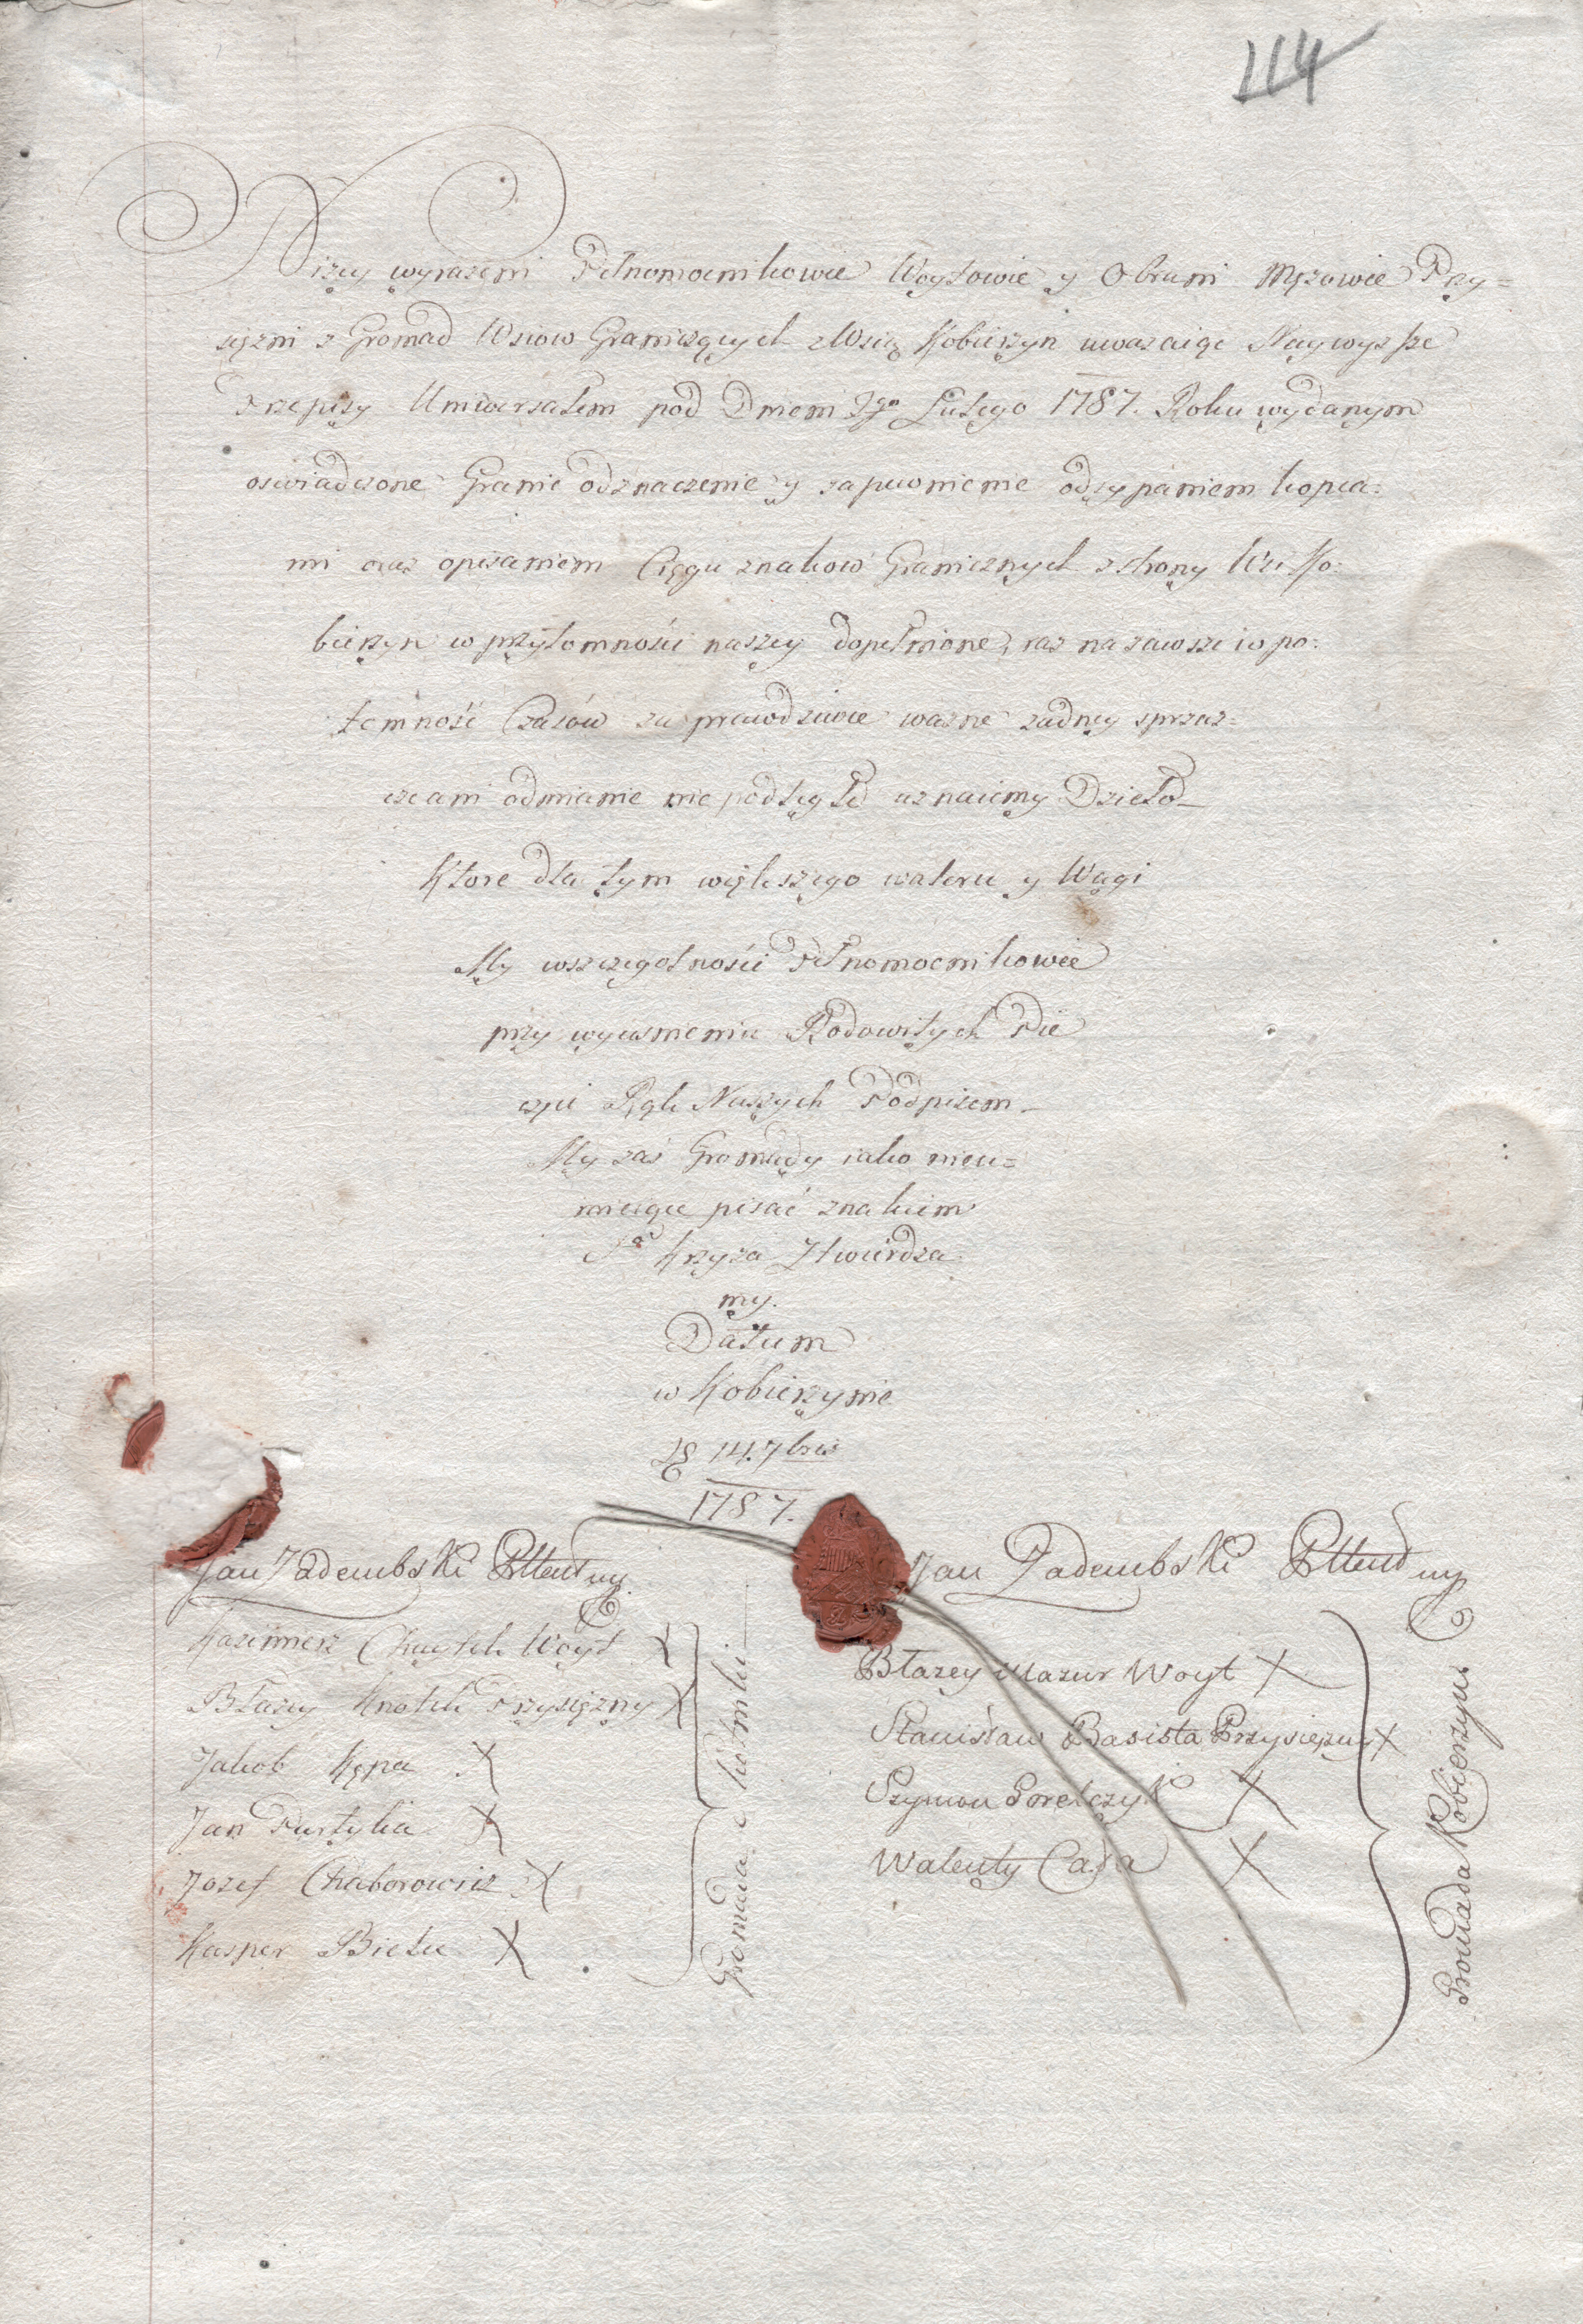 114
Niżey wyrażeni Pełnomocnikowie Woytowie y Obrani Mężowie Przy=
siężni z Gromad Wsiow Graniczących z Wsią Kobierzyn uważaiąc Naywyższe
Przepisy Uniwersałem pod Dniem 1go Lutego 1787. Roku wydanym
oswiadczone Granic odznaczenie y zapewnienie odsypaniem kopca=
mi oraz opisaniem Ciągu znakow Granicznych z strony Wsi Ko=
bierzyn w przytomności naszey dopełnione, raz na zawsze i w po=
tomność Czasów za prawdziwie ważne żadney sprzecz=
ce ani odmianie nie podległe uznaiemy Dzieło
Ktore dla tym większego waloru y Wagi
My wszczegolności Pełnomocnikowie
przy wycisnieniu Rodowitych Pie
częci Rąk Naszych Podpisem
My zaś Gromady iako nieu=
mieiące pisać znakiem
Sgo Krzyża Ztwierdza
my.
Datum
w Kobierzynie
D 14. 7bris
1787.
Jan Zadembski Plltent ny
Kazimierz Chwytek Woyt X
Błażey Knotek Przysiężny X
Jakob Kępa X
Jan Partyka X
Jozef Chaborowicz X
Kasper Bieta X
Gromada Chotniki
Jan Zadembski Plltent ny
Błazey Mazur Woyt X
Stanisław Basista Przysiężny X
Szymon Gorelczyk X
Walenty X
Gromada Kobierzyn